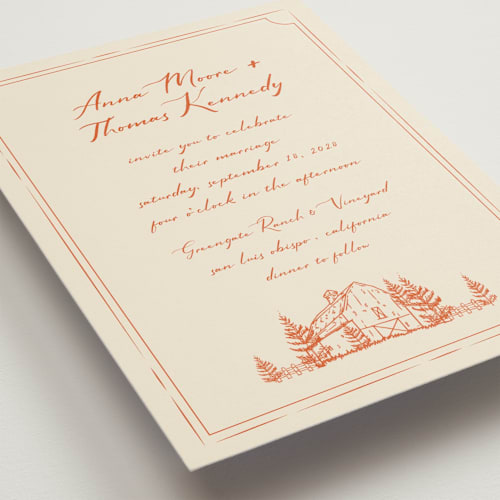 Anna Moore +
Thomas Kennedy
invite you to celebrate
their marriage
saturday, september 28, 2028
four o'clock in the afternoon
Greengate Ranch & Vineyard
san luis obispo, california
dinner to follow